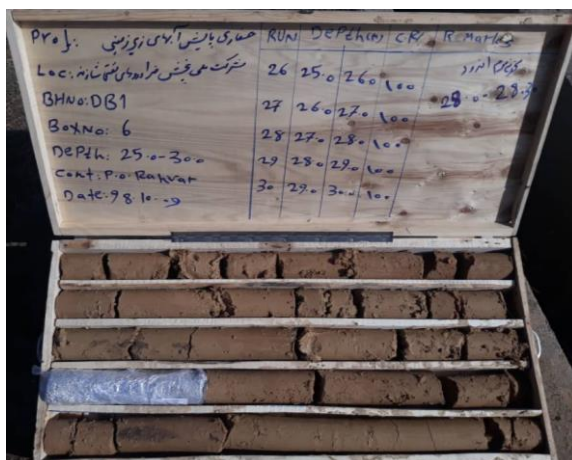 Proj: حفاری پایش آبهای زیرزمینی
Loc: شرکت ملی پخش فراورده‌های نفتی
BHNo: DB1
BoxNo: 6
Depth: 25.0-30.0
Cont: P.o. Rahvar
Date: 98.10.09
RUN Depth(m) CR% Remarks
26 25.0 26.0 100
27 26.0 27.0 100
28 27.0 28.0 100
29 28.0 29.0 100
30 29.0 30.0 100
28.0 - 28.30